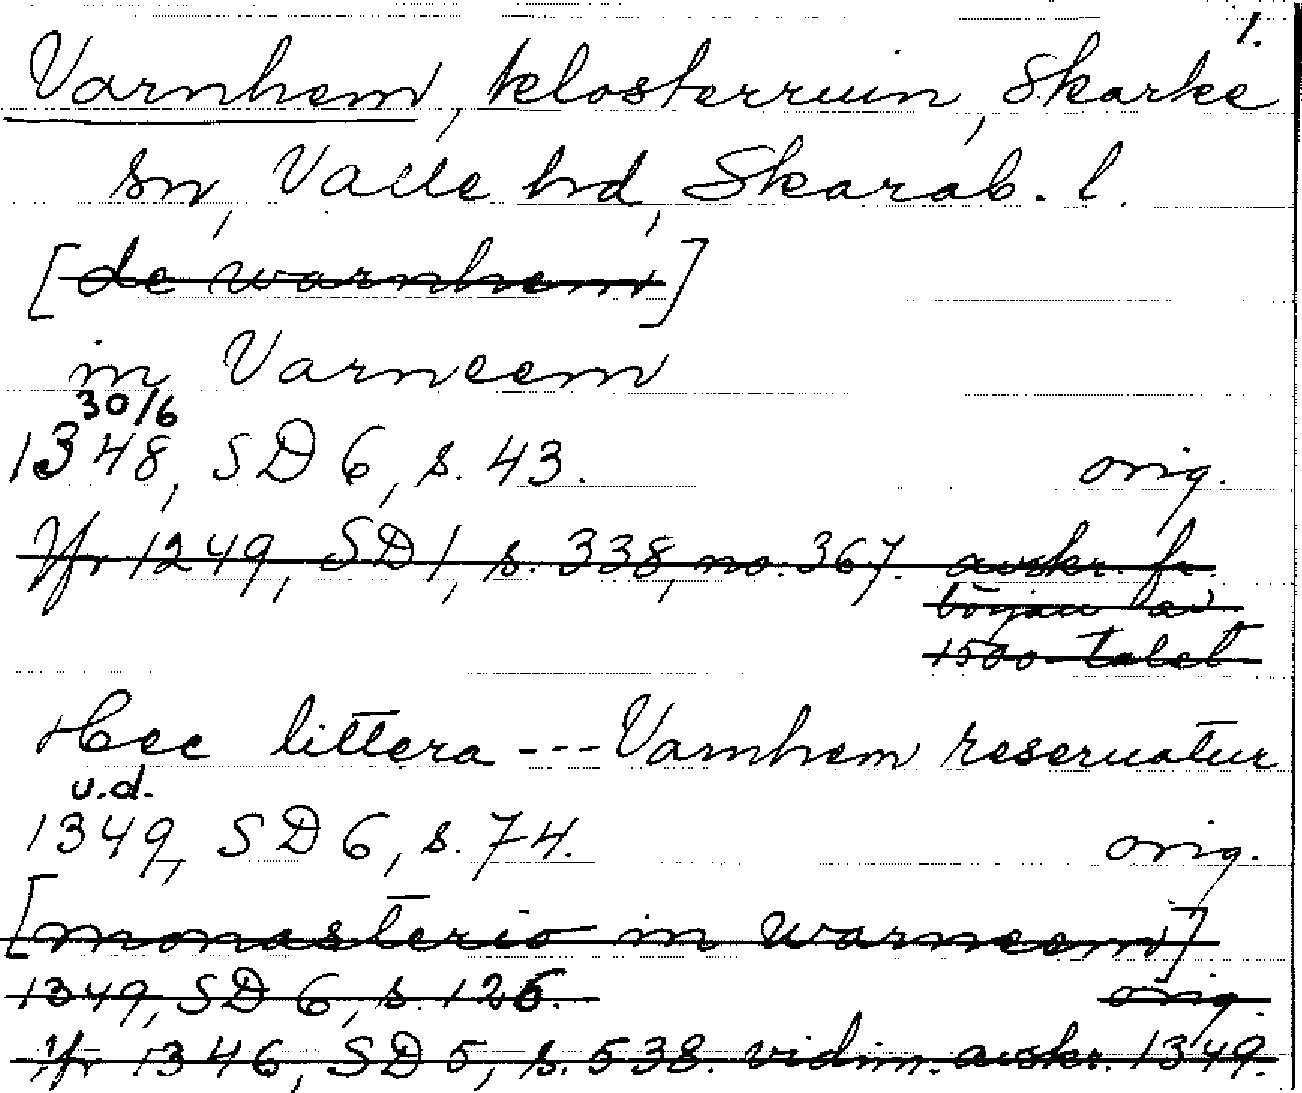 1.
Varnhem, klosterruin, Skarke
sn, Valle hd, Skarab. l.
[de warnhem]
in Varneem
30/6
1348, SD 6, s. 43. orig.
Jfr 1249, SD 1, s. 338, no. 367. avskr. fr.
början av
1500-talet
Hec littera --- Varnhem reseruatur
u.d.
1349, SD 6, s. 74. orig.
[monasterio in warneem]
1349, SD 6, s. 125. orig.
Jfr 1346, SD 5, s. 538. vidim. avskr. 1349.